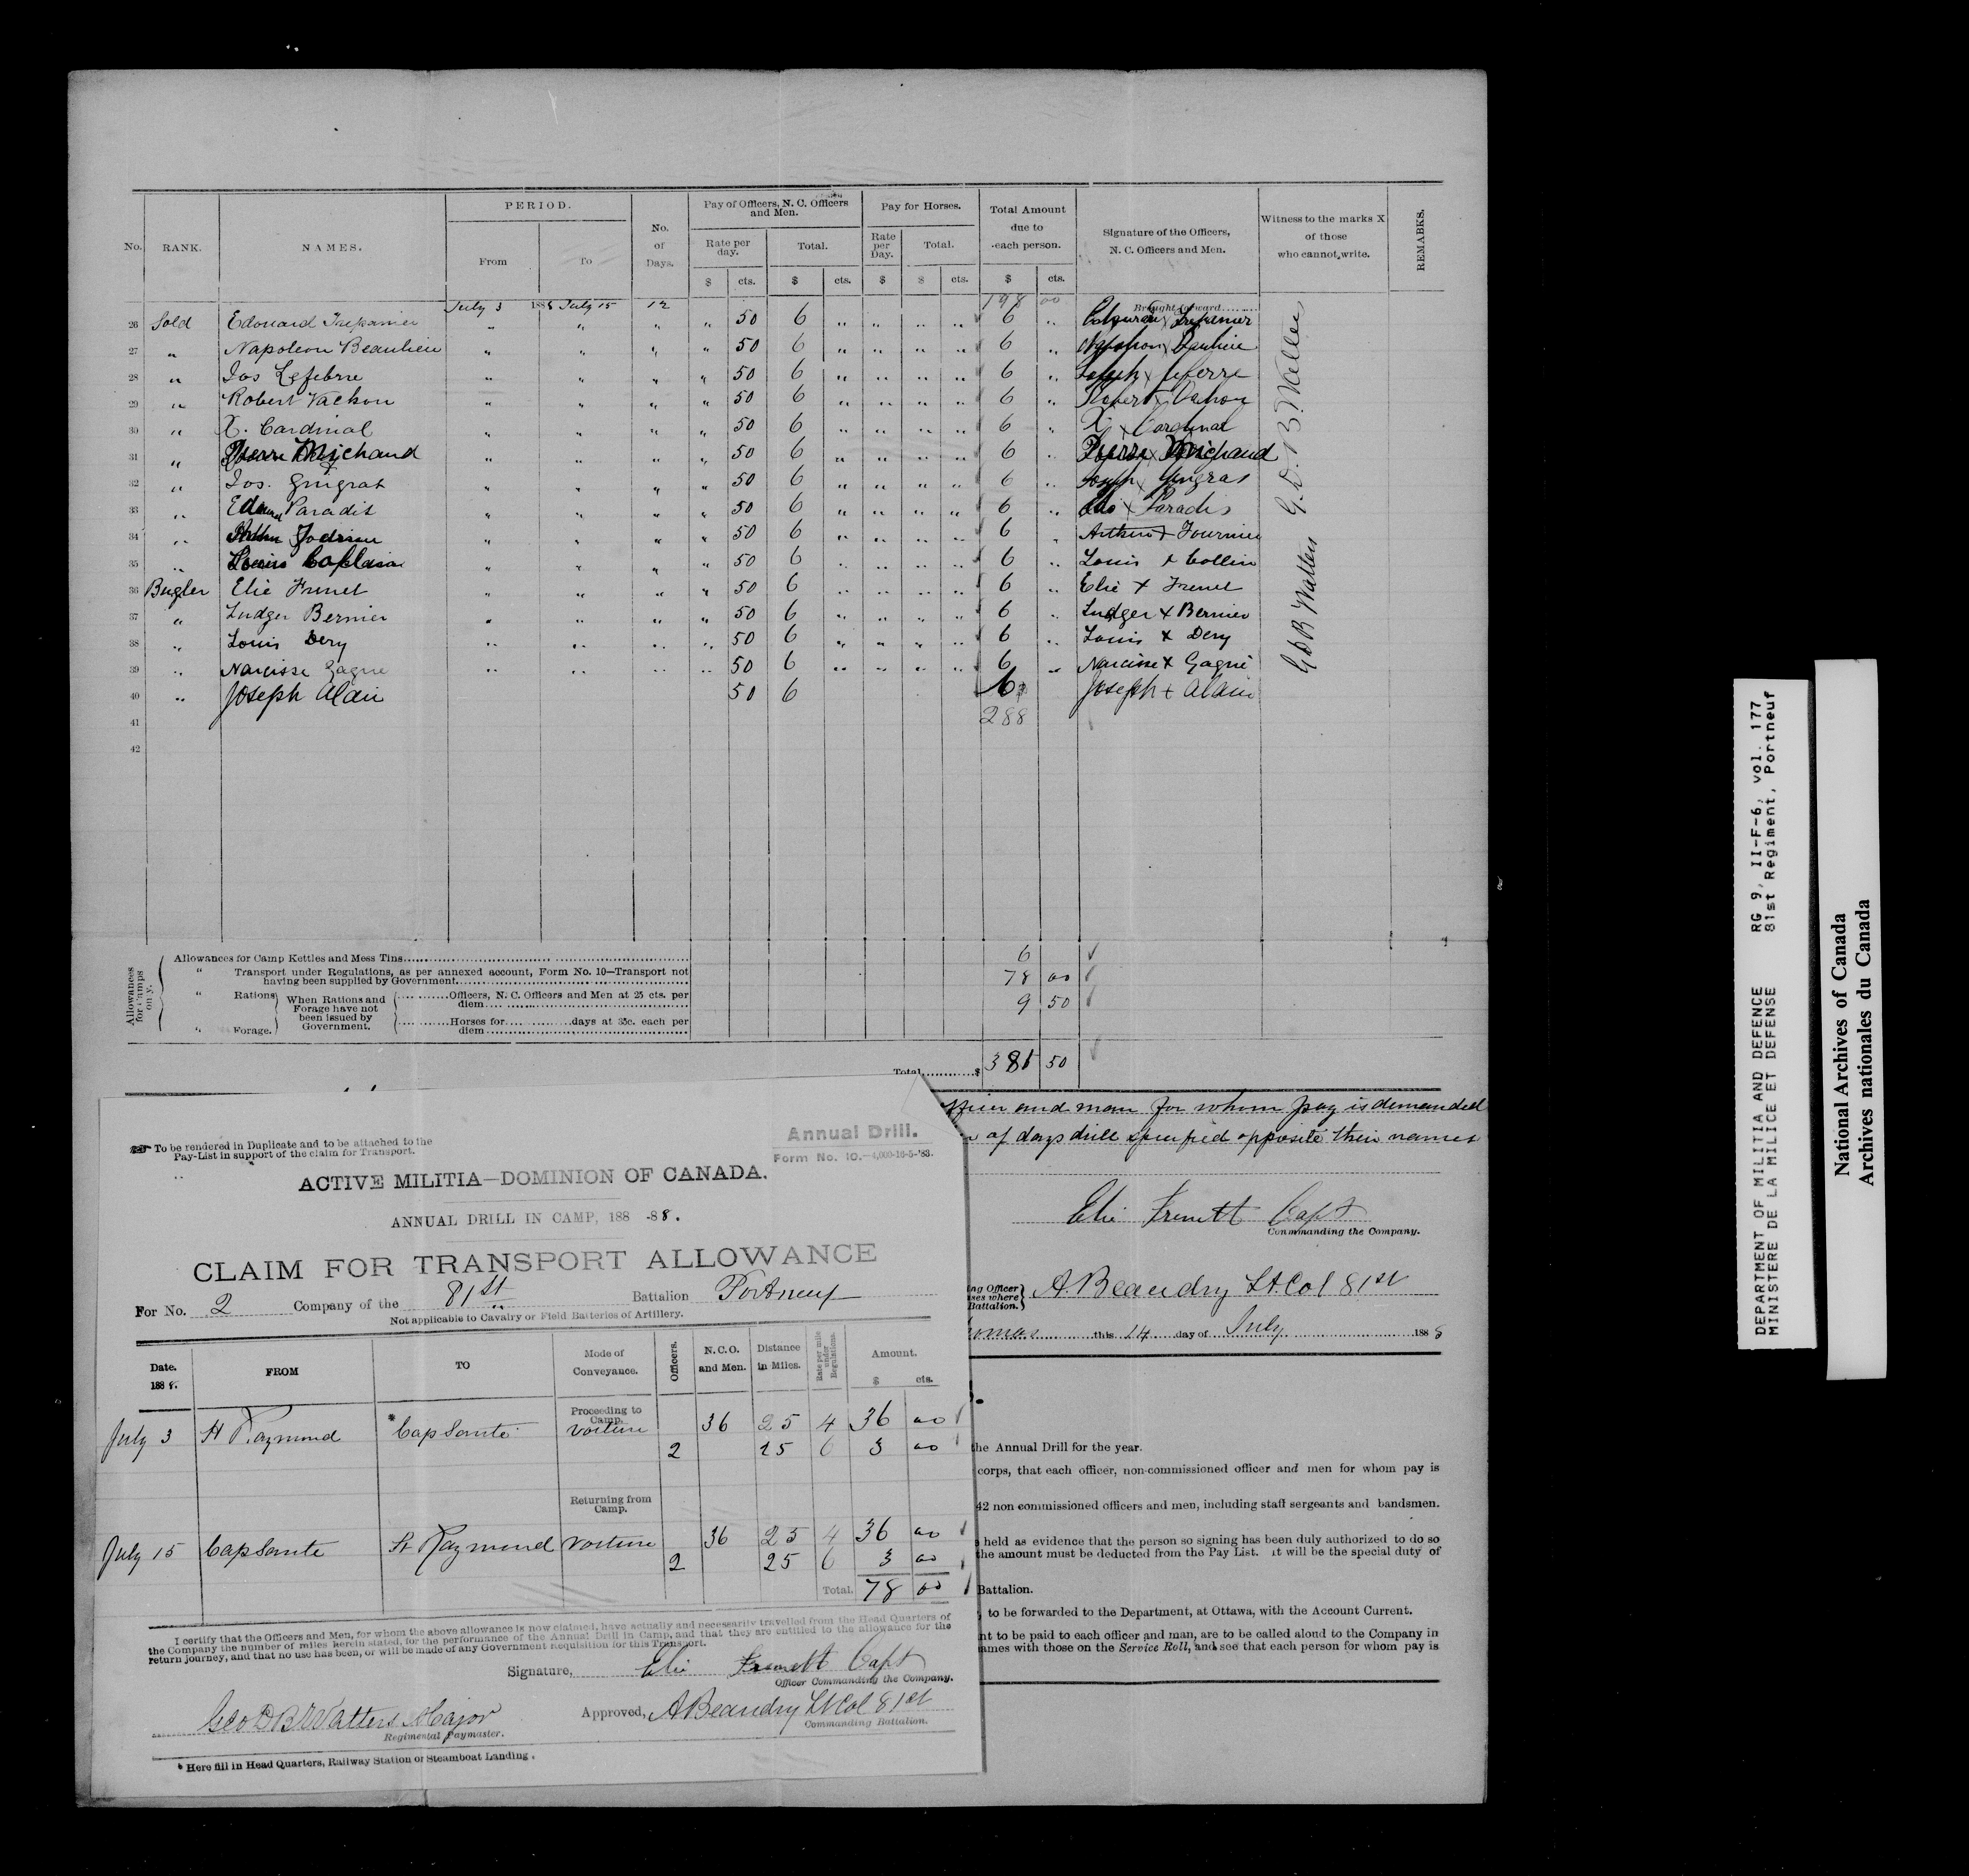 No. RANK. NAMES. PERIOD. No. of Days. Pay of Officers, N. C. Officers and Men. Pay for Horses. Total Amount due to each person. Signature of the Officers, N. C. Officers and Men. Witness to the marks X of those who cannot write. REMARKS.
From To Rate per day. Total. Rate per Day. Total.
$ cts. $ cts. $ $ cts. $ cts.
July 3 1888 July 15 12 198 00 Brought forward........
26 Sold Edouard Trepanier " " " " 50 6 " " " " 6 " Edouard x Trepanier
27 " Napoleon Beaulieu " " " " 50 6 " " " " 6 " Napoleon x Beaulieu
28 " Jos Lefebvre " " " " 50 6 " " " " 6 " Joseph x Lefebvre
29 " Robert Vachon " " " " 50 6 " " " " 6 " Robert x Vachon
30 " X. Cardinal " " " " 50 6 " " " " 6 " X. x Cardinal
31 " Pierre Michaud " " " " 50 6 " " " " 6 " Pierre x Michaud
32 " Jos. Gingras " " " " 50 6 " " " " 6 " Joseph x Gingras
33 " Paradis " " " " 50 6 " " " " 6 " x Paradis
34 " " " " " 50 6 " " " " 6 " Arthur x Fournier
35 " Louis " " " " 50 6 " " " " 6 " Louis x Collin
36 Bugler Elie Frenet " " " " 50 6 " " " " 6 " Elie + Frenet
37 " Ludger Bernier " " " " 50 6 " " " " 6 " Ludger x Bernier
38 " Louis Dery " " " " 50 6 " " " " 6 " Louis x Dery
39 " Narcisse Gagne " " " " 50 6 " " " " 6 " Narcisse x Gagné
40 " Joseph Alain 50 6 6 Joseph + Alain
41 288
42
G. D. B. Watters
G D B Watters
Allowances for Camps only.
Allowances for Camp Kettles and Mess Tins 6
" Transport under Regulations, as per annexed account, Form No. 10—Transport not having been supplied by Government 78 00
" Rations When Rations and Forage have not been issued by Government. Officers, N. C. Officers and Men at 25 cts. per diem 9 50
" Forage. Horses for days at 35c. each per diem
Total $ 381 50
officer and man for whom pay is demanded
of days drill specified opposite their names
Elie Frenett Capt
Commanding the Company.
ng Officer
ses where
Battalion. } A. Beaudry Lt. Col 81st
homas this 14 day of July 1888
the Annual Drill for the year.
corps, that each officer, non-commissioned officer and men for whom pay is
42 non commissioned officers and men, including staff sergeants and bandsmen.
held as evidence that the person so signing has been duly authorized to do so
the amount must be deducted from the Pay List. It will be the special duty of
Battalion.
, to be forwarded to the Department, at Ottawa, with the Account Current.
nt to be paid to each officer and man, are to be called aloud to the Company in
ames with those on the Service Roll, and see that each person for whom pay is
To be rendered in Duplicate and to be attached to the
Pay-List in support of the claim for Transport.
Annual Drill.
Form No. 10.—4,000-16-5-'83.
ACTIVE MILITIA—DOMINION OF CANADA.
ANNUAL DRILL IN CAMP, 188 -88.
CLAIM FOR TRANSPORT ALLOWANCE
For No. 2 Company of the 81st Battalion Portneuf
Not applicable to Cavalry or Field Batteries of Artillery.
Date. 1888. FROM TO Mode of Conveyance. Officers. N.C.O. and Men. Distance in Miles. Rate per mile under Regulations. Amount. $ cts.
Proceeding to Camp.
July 3 St Raymond *Cap Santé voiture 36 25 4 36 00
2 25 6 3 00
Returning from Camp.
July 15 Cap Santé St Raymond voiture 36 25 4 36 00
2 25 6 3 00
Total. 78 00
I certify that the Officers and Men, for whom the above allowance is now claimed, have actually and necessarily travelled from the Head Quarters of
the Company the number of miles herein stated, for the performance of the Annual Drill in Camp, and that they are entitled to the allowance for the
return journey, and that no use has been, or will be made of any Government Requisition for this Transport.
Signature, Elie Frenett Capt
Officer Commanding the Company.
Geo D B Watters Major
Regimental Paymaster.
Approved, A Beaudry Lt Col 81st
Commanding Battalion.
* Here fill in Head Quarters, Railway Station or Steamboat Landing.
DEPARTMENT OF MILITIA AND DEFENCE RG 9, II-F-6, vol. 177
MINISTERE DE LA MILICE ET DEFENSE 81st Regiment, Portneuf
National Archives of Canada
Archives nationales du Canada